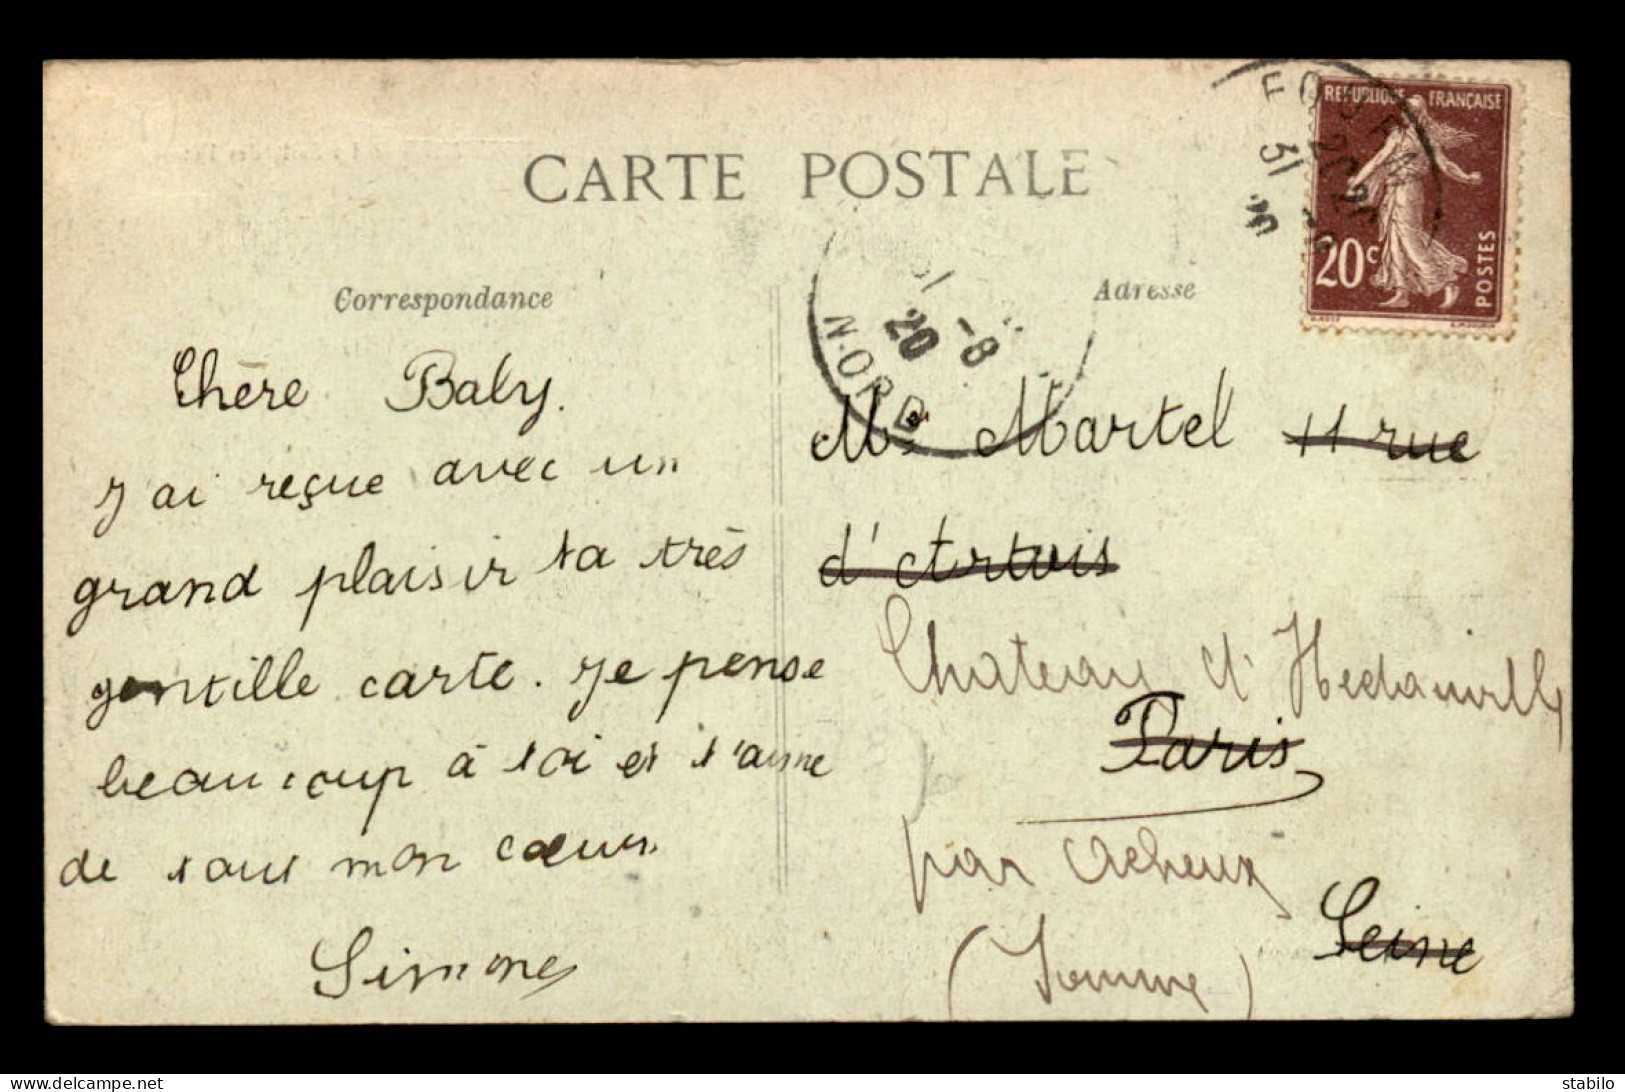 CARTE POSTALE
Correspondance
Chère Baby.
J'ai reçue avec un
grand plaisir ta très
gentille carte. Je pense
beaucoup à toi et t'aime
de tout mon cœur.
Simone
Adresse
REPUBLIQUE FRANÇAISE
20c
POSTES
31 -8
20
NORD
Martel 11 rue
d'Artois
Chateau d'Hedauville
Paris
par Acheux
Seine
(Somme)
stabilo